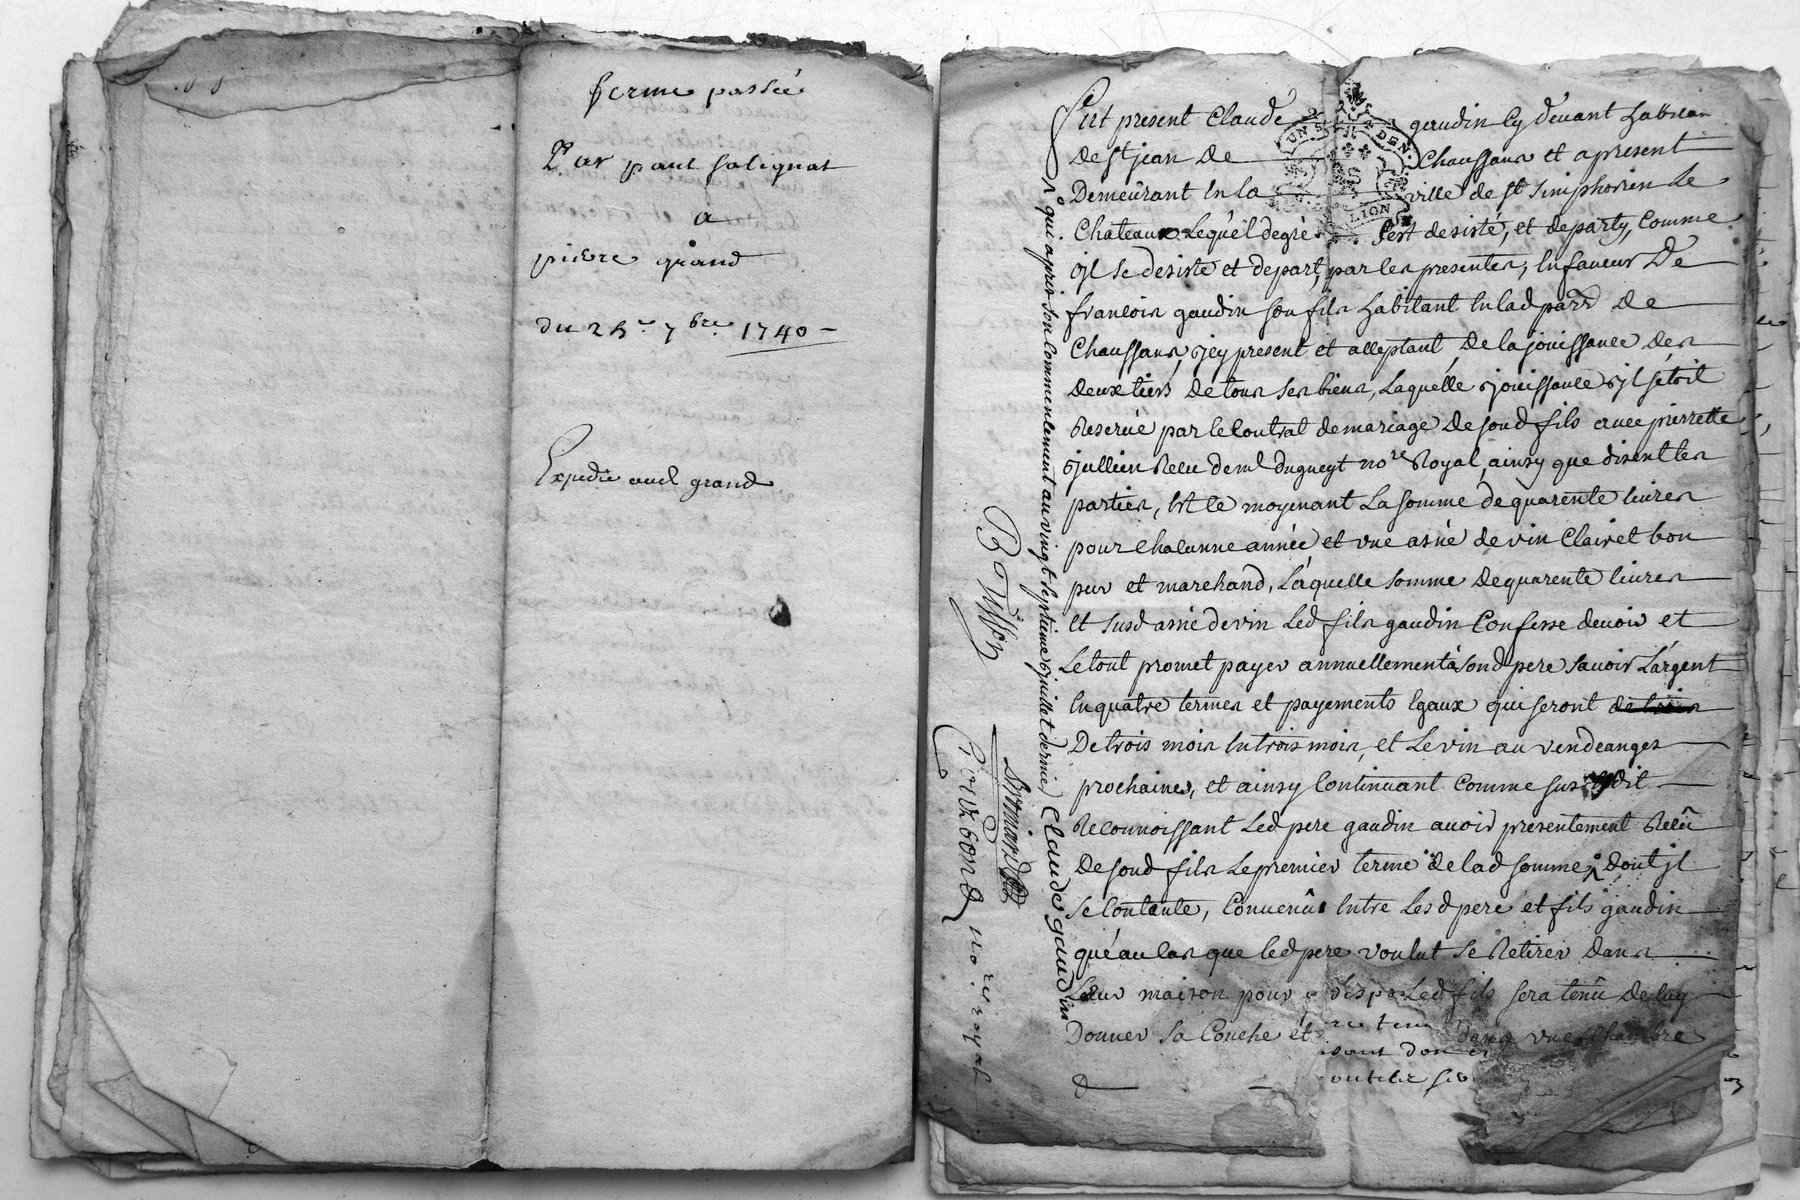 ferme passée
Par paul salignat
a
pierre grand
du 25e 7bre 1740
Expedié aud grand
Fut present Claude gaudin cy devant habitan
de st jean de Chaussans et apresent
Demeurant en la ville de st simphorien le
Chateau Lequel de gré s'est desisté, et departy, comme
jl se desiste et depart, par les presentes, en faveur De
francois gaudin son fils habitant en lad parr De
Chaussans, jcy present et acceptant, de la jouissance des
deux tiers de tous ses biens, Laquelle jouissance jl s'etoit
Reservé par le Contrat de mariage De soud fils avec pierrette
jullien Receu de me dugueyt nore Royal, ainsy que disent les
parties, Et ce moyenant La somme de quarente livres
pour chacunne année et une asné de vin Clairet bon
pur et marchand, Laquelle somme de quarente livres
et susd asné de vin Led fils gaudin Confesse devoir et
Le tout promet payer annuellement à sond pere savoir L'argent
En quatre termes et payements Egaux qui seront de trois
De trois mois En trois mois, et Le vin au vendeanges
prochaines, et ainsy Continuant Comme susd dit
Reconnoissant Led pere gaudin avoir presentement Receû
De soud fils Le premier terme de lad somme, dont jl
se Contente, Convenû Entre Lesd pere et fils gaudin
qué au cas que led pere voulut se Retirer dans
Leur maison pour Led fils sera tenû De luy
Donner sa Couche et dans une Chambre
UN S DEN.
LION
qui a pris son Commencement au vingt septieme juillet dernier
Claude gaudin
no re royal